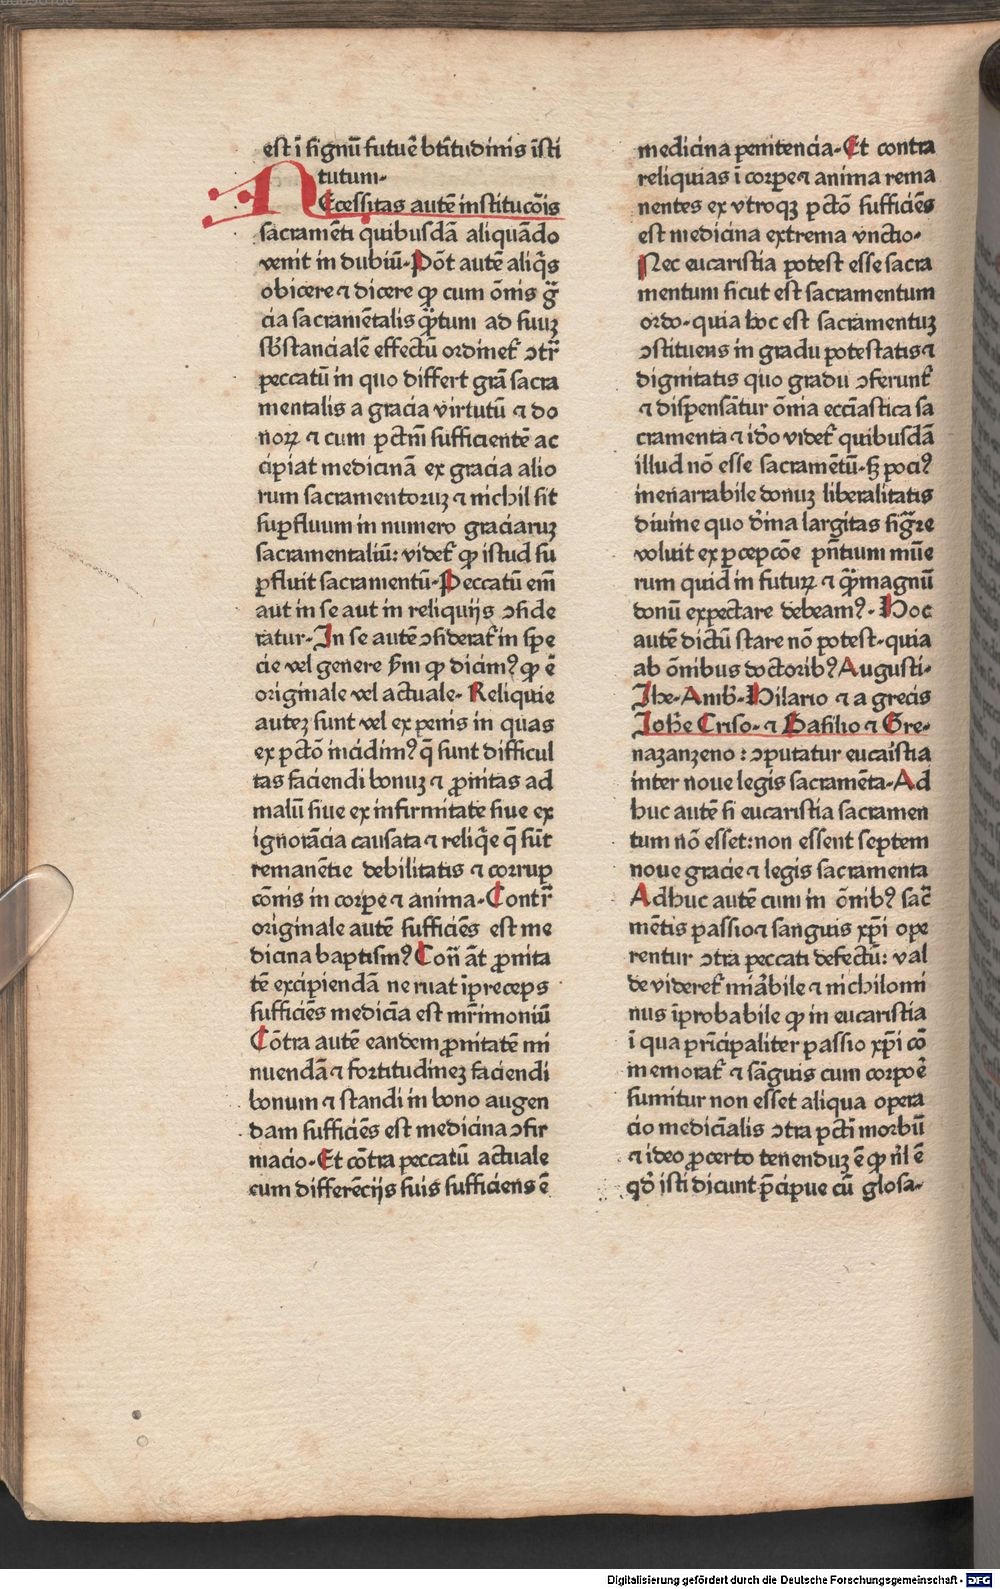 est ī signū futuē btītudinis īsti
tutum.
NEcessitas autē institucōis
sacramēti quibusdā aliquādo
venit in dubiū. Pōt autē aliq̄s
obicere ⁊ dicere ꝙ cum ōnis gr̄a
cia sacramētalis q̄ꝫtum ad suuꝫ
sb̄stancialē effectū ordinet̄ ↄtr̄
peccatū in quo differt grā sacra
mentalis a gracia virtutū ⁊ do
norꝝ ⁊ cum pctm̄ sufficientē ac
cipiat medicinā ex gracia alio
rum sacramentoruꝫ ⁊ nichil sit
suꝑfluum in numero graciaruꝫ
sacramentaliū: videt̄ ꝙ istud su
ꝑfluit sacramentū. Peccatū em̄
aut in se aut in reliquijs ↄside
ratur. In se autē ↄsiderat̄ in spe
cie vel genere ꝑm ꝙ dicimꝰ ꝙ ē
originale vel actuale. Reliquie
auteꝫ sunt vel ex penis in quas
ex pctō incidimꝰ q̄ sunt difficul
tas faciendi bonuꝫ ⁊ ꝓnitas ad
malū siue ex infirmitate siue ex
ignorācia causata ⁊ reliq̄e q̄ sūt
remanētie debilitatis ⁊ corrup
cōnis in corꝑe ⁊ anima. Contr̄
originale autē sufficiēs est me
dicina baptismꝰ Con̄ āt ꝓnita
tē excipiendā ne ruat īpreceps
sufficiēs medicīa est mr̄imoniū
Cōtra autē eandem ꝓnitatē mi
nuendā ⁊ fortitudineꝫ faciendi
bonum ⁊ standi in bono augen
dam sufficiēs est medicina ↄfir
macio. Et cōtra peccatū actuale
cum differēcijs suis sufficiens ē
medicina penitencia. Et contra
reliquias ī corꝑe ⁊ anima rema
nentes ex vtroqꝫ pctō sufficiēs
est medicina extrema vnctio.
Nec eucaristia potest esse sacra
mentum sicut est sacramentum
ordo. quia hoc est sacramentuꝫ
ↄstituens in gradu potestatis ⁊
dignitatis quo gradu ↄferunt̄
⁊ dispensātur ōnia eccīastica sa
cramenta ⁊ iđo videt̄ quibusdā
illud nō esse sacramētū. sꝫ pociꝰ
inenarrabile donuꝫ liberalitatis
diuine quo dīna largitas sig̅re
voluit ex ꝑcepcōe pn̄tium mūe
rum quid in futurꝝ ⁊ q̄ꝫ magnū
donū expectare debeamꝰ. Hoc
autē dictū stare nō potest. quia
ab ōnibus doctoribꝰ Augusti.
Ihe. Amb̄. Hilario ⁊ a grecis
Ioh̄e Criso. ⁊ Basilio ⁊ Gre.
nazanzeno: ↄputatur eucaīstia
inter noue legis sacramēta. Ad
huc autē si eucaristia sacramen
tum nō esset: non essent septem
noue gracie ⁊ legis sacramenta
Adhuc autē cum in ōnibꝰ sac̄
mētis passio ⁊ sanguis xp̄i ope
rentur ↄtra peccati defectū: val
de videret̄ mir̄abile ⁊ nichilomi
nus īprobabile ꝙ in eucaristia
ī qua prīcipaliter passio xp̄i cō
memorat̄ ⁊ sāguis cum corpoē
sumitur non esset aliqua opera
cio medicīalis ↄtra pctī morbū
⁊ ideo ꝓcerto tenenduꝫ ē ꝙ nl̄ ē
qđ isti dicunt p̄cipue cū glosa.
Digitalisierung gefördert durch die Deutsche Forschungsgemeinschaft - DFG